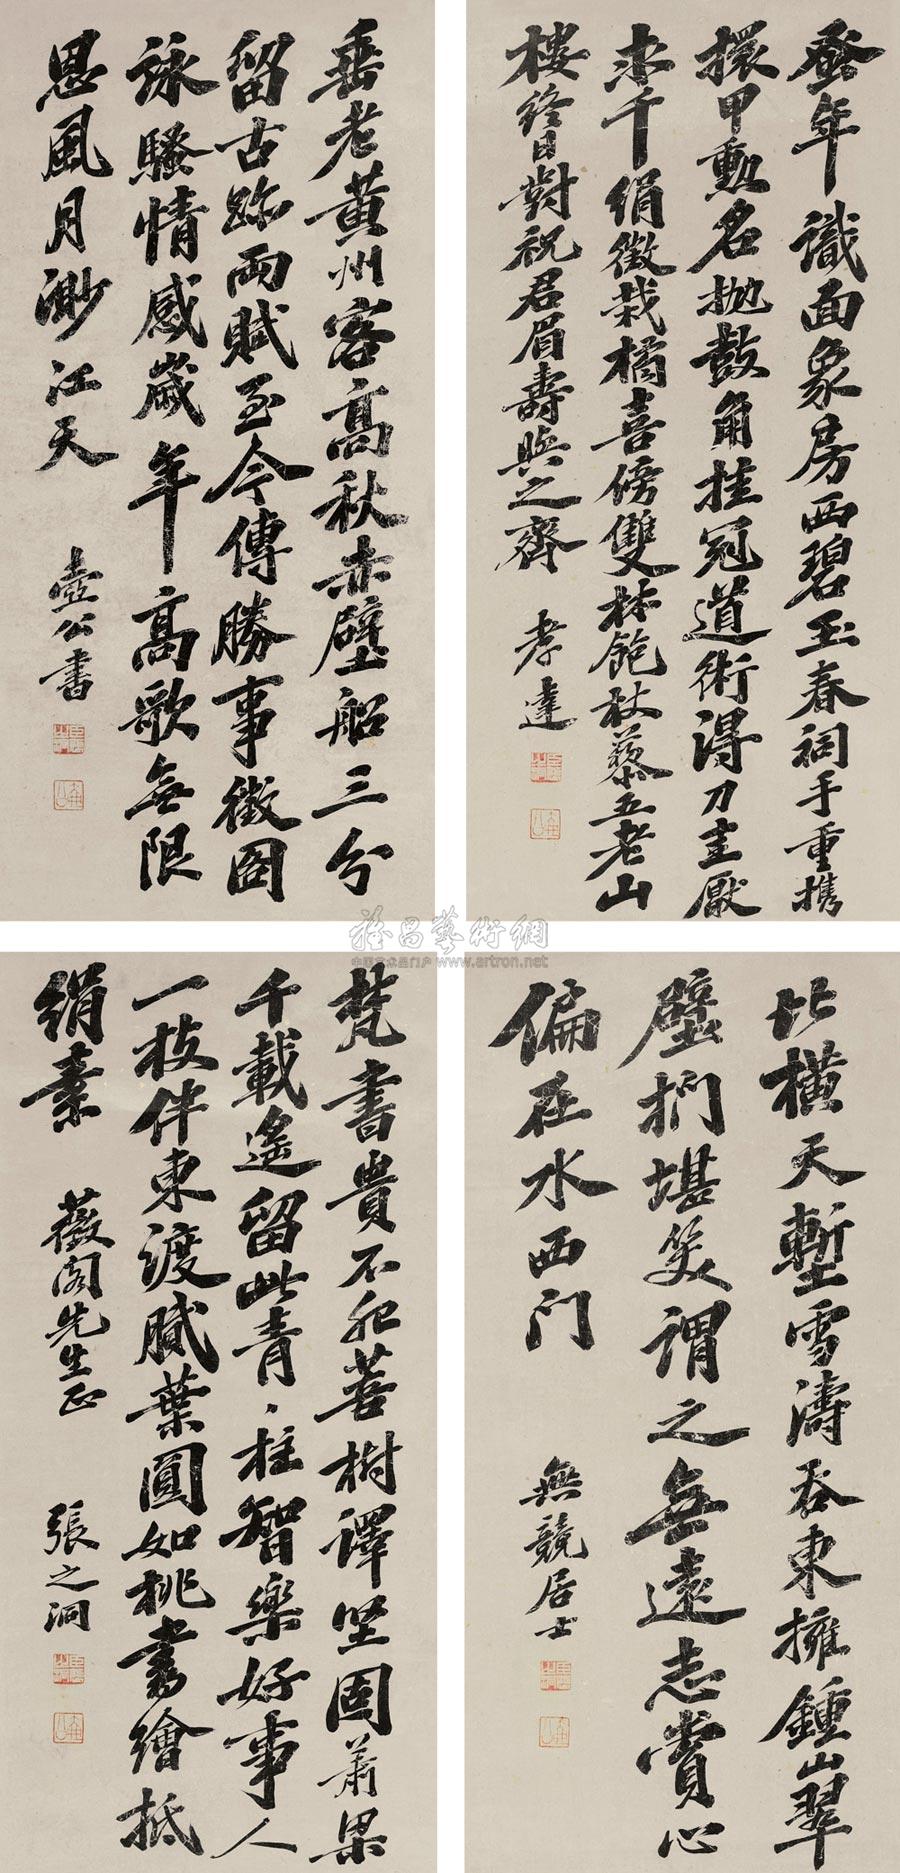 年識面象房西碧玉春祠手重攜
擐甲勳名拋鼓角挂冠道術得刀圭厭
求千絹徵栽橘喜傍雙林飽杖藜五老山
樓終日對祝君眉壽與之齊
孝達
垂老黃州客高秋赤壁船三分
留古跡兩賦至今傳勝事徵圖
詠騷情感歲年高歌無限
思風月渺江天
壺公書
雅昌藝術網
中国艺术品门户 www.artron.net
比橫天塹雪濤吞東擁鍾山翠
壁捫堪笑謂之無遠志賞心
偏在水西門
無競居士
梵書貴不死菩樹譯堅固蕭梁
千載遙留此青、柱智樂好事人
一枝伴東渡膩葉圓如桃書繪抵
絹素
薇閣先生正
張之洞